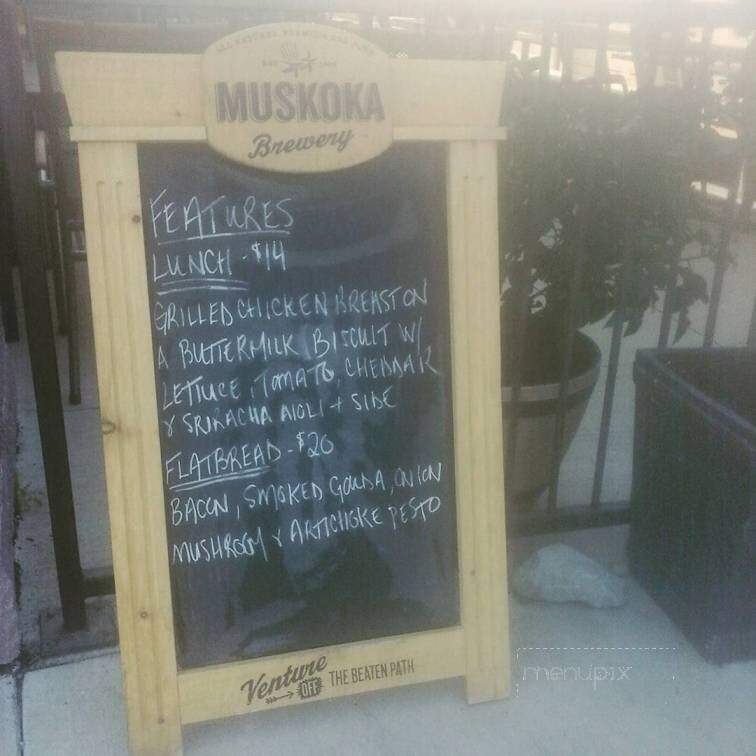 MUSKOKA
Brewery
FEATURES
LUNCH - $14
GRILLED CHICKEN BREAST ON
A BUTTERMILK BISCUIT W/
LETTUCE, TOMATO, CHEDDAR
& SRIRACHA AIOLI + SIDE
FLATBREAD - $20
BACON, SMOKED GOUDA, ONION
MUSHROOM & ARTICHOKE PESTO
Venture OFF THE BEATEN PATH
menupix